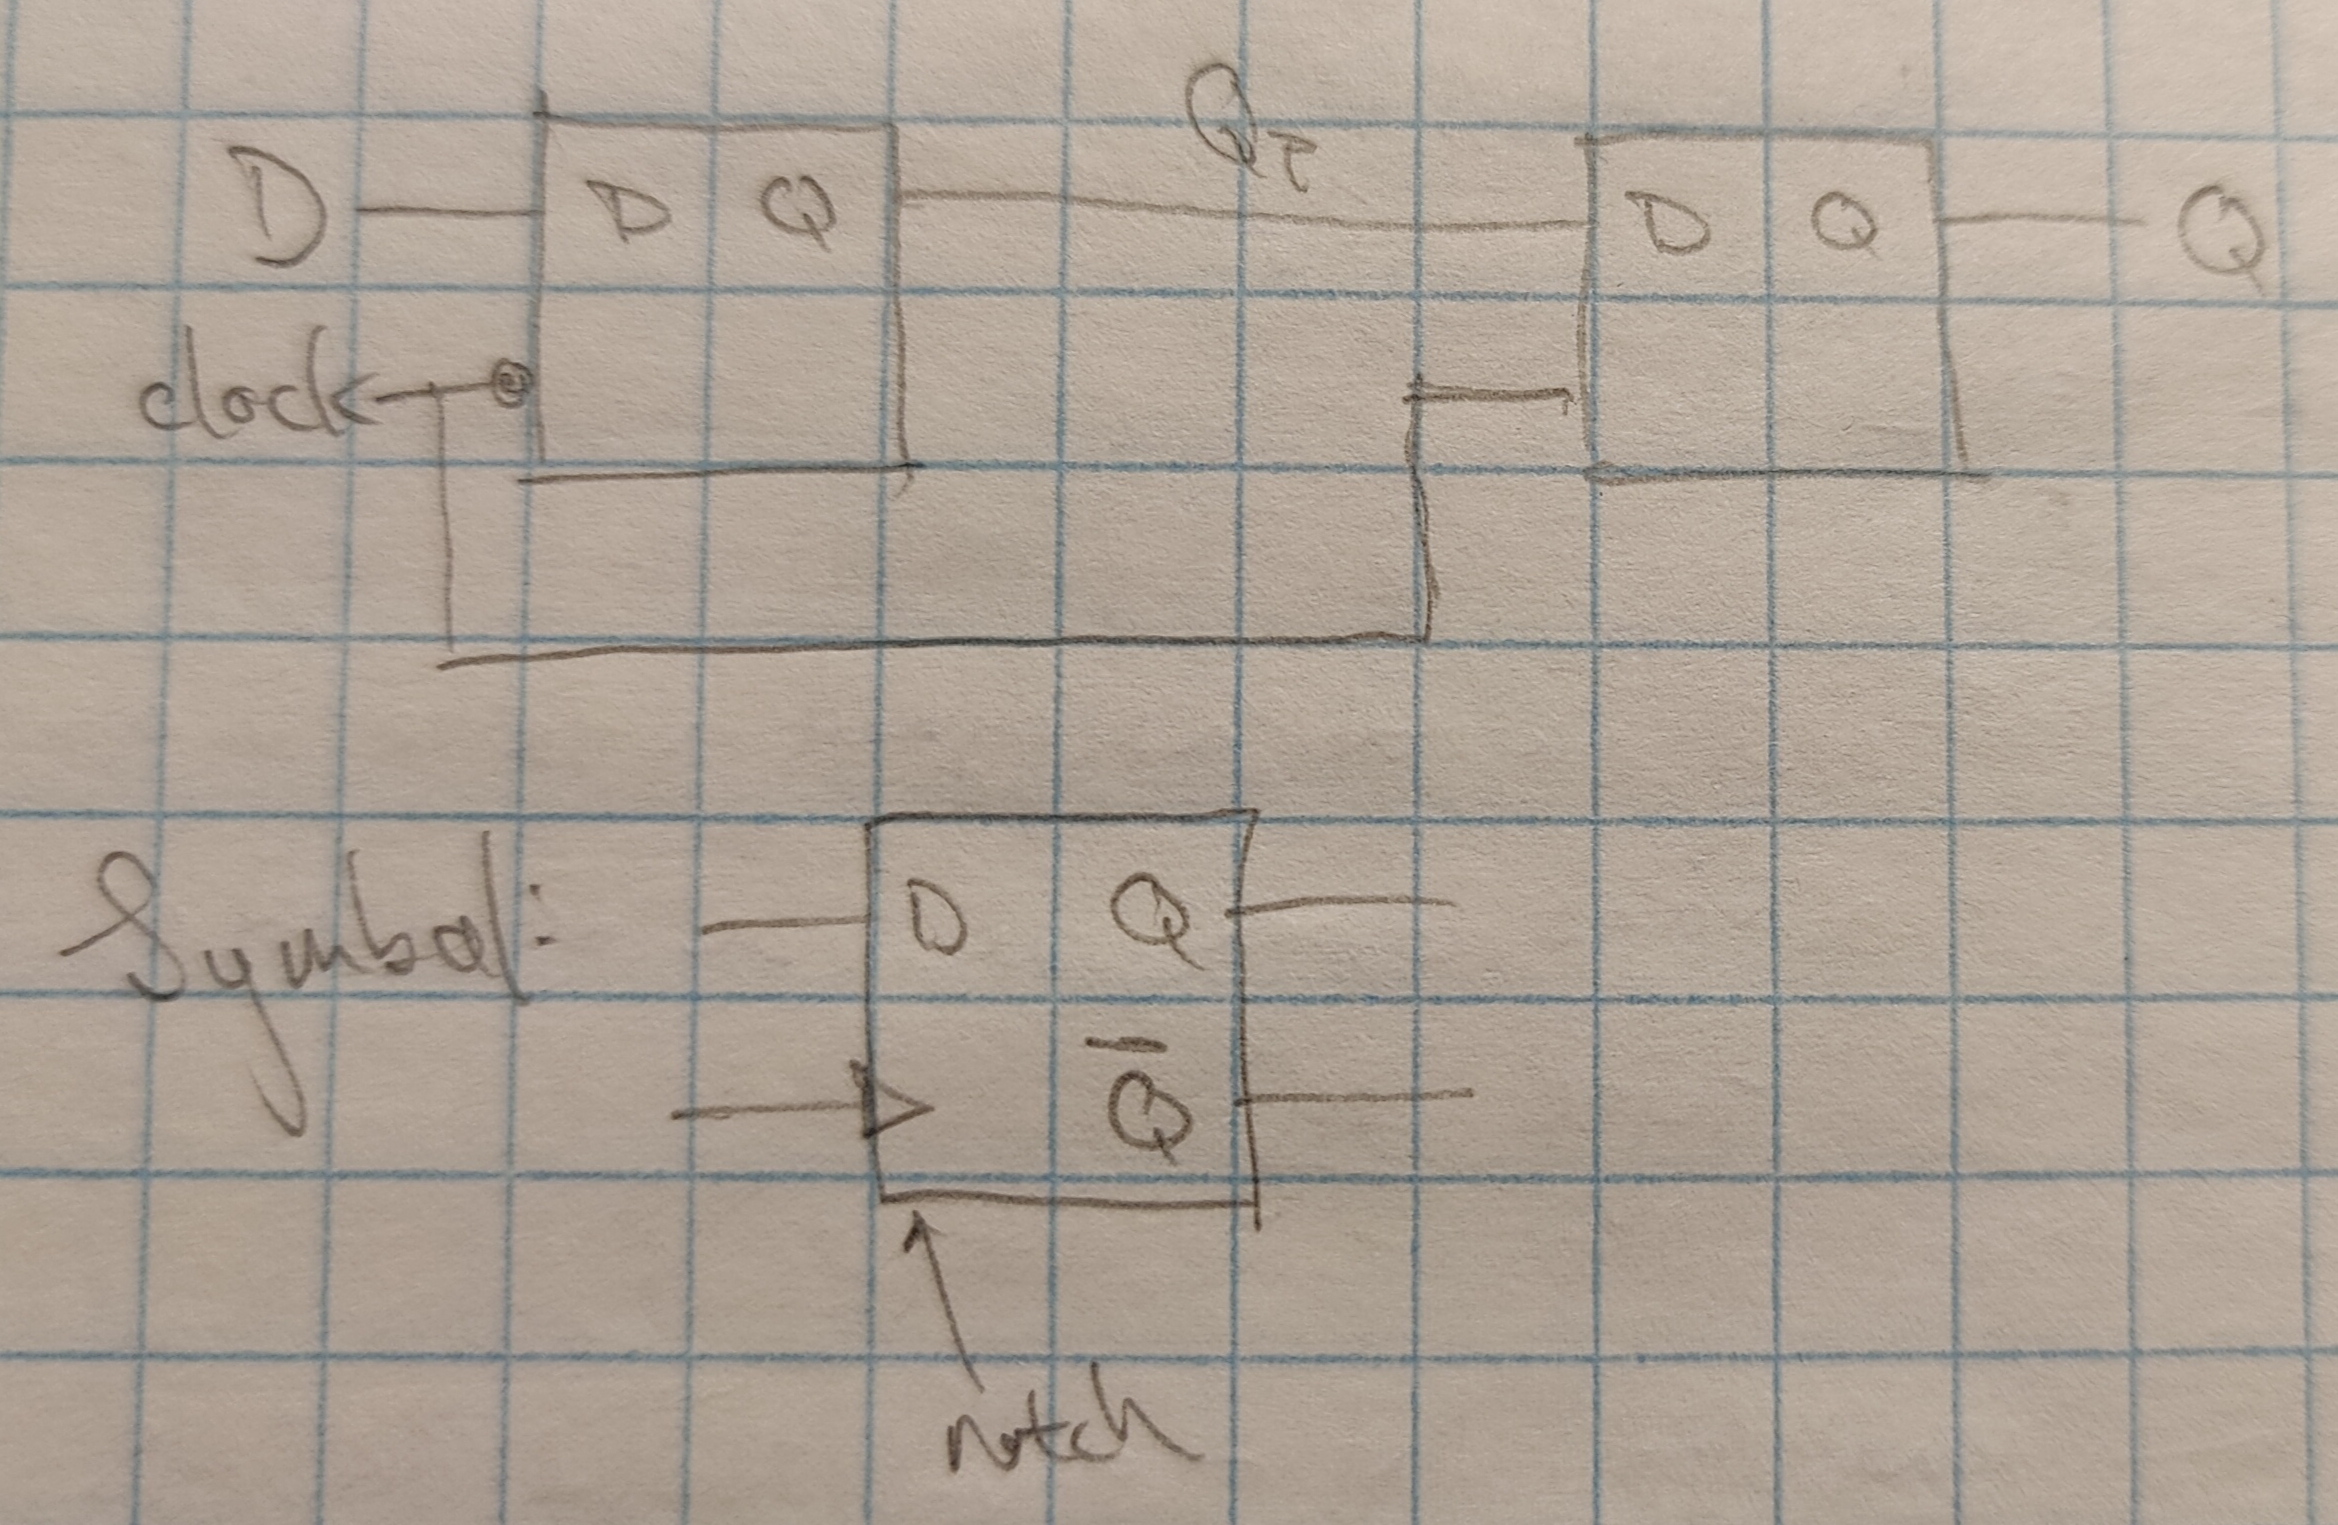 D D Q Q_I D Q Q
clock
Symbol: D Q
Q̅
notch